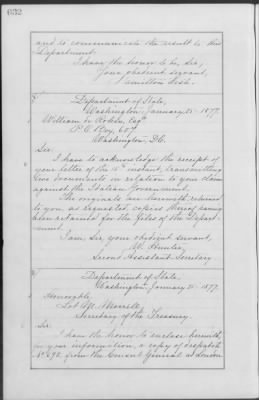 632
and to communicate the result to this
Department.
I have the honor to be, Sir,
Your obedient servant,
Hamilton Fish.
Department of State,
Washington, January 25th 1877.
William de Rohan, Esq.
P.O. Box, 607
Washington, D.C.
Sir:
I have to acknowledge the receipt of
your letter of the instant, transmitting
five documents in relation to your claim
against the Italian Government.
The originals are herewith returned
to you as requested, copies thereof having
been retained for the files of the Depart-
ment.
I am, Sir, your obedient servant,
W. Hunter,
Second Assistant Secretary
Department of State,
Washington, January 25, 1877.
Honorable
Lot M. Morrill,
Secretary of the Treasury.
Sir:
I have the honor to enclose herewith,
for your information, a copy of despatch
No. 892, from the Consul General at London